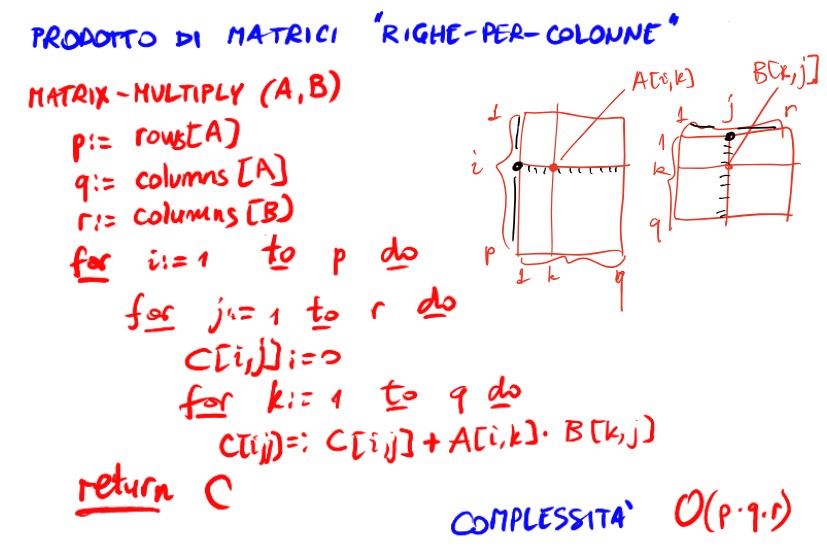 PRODOTTO DI MATRICI "RIGHE-PER-COLONNE"
MATRIX-MULTIPLY (A,B)
p:= rows[A]
q:= columns [A]
r:= columns [B]
for i:=1 to p do
for j:=1 to r do
C[i,j]:=0
for k:=1 to q do
C[i,j]=: C[i,j] + A[i,k]· B[k,j]
return C
COMPLESSITA' O(p·q·r)
A[i,k]
1
i
p
1 k q
B[k,j]
1 j r
1
k
q